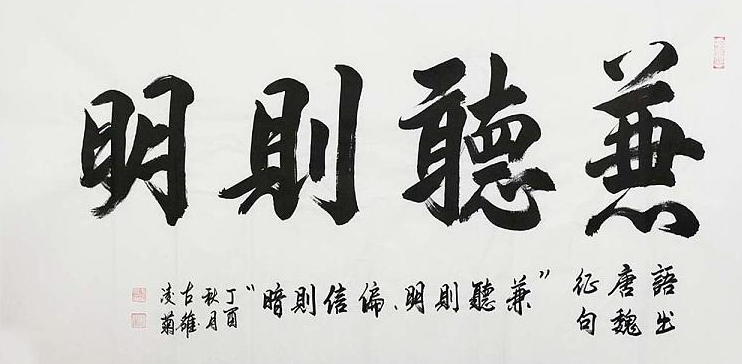 兼聽則明
語出
唐魏
征句
“兼聽則明、偏信則暗”
丁酉
秋月
古雒
凌菊